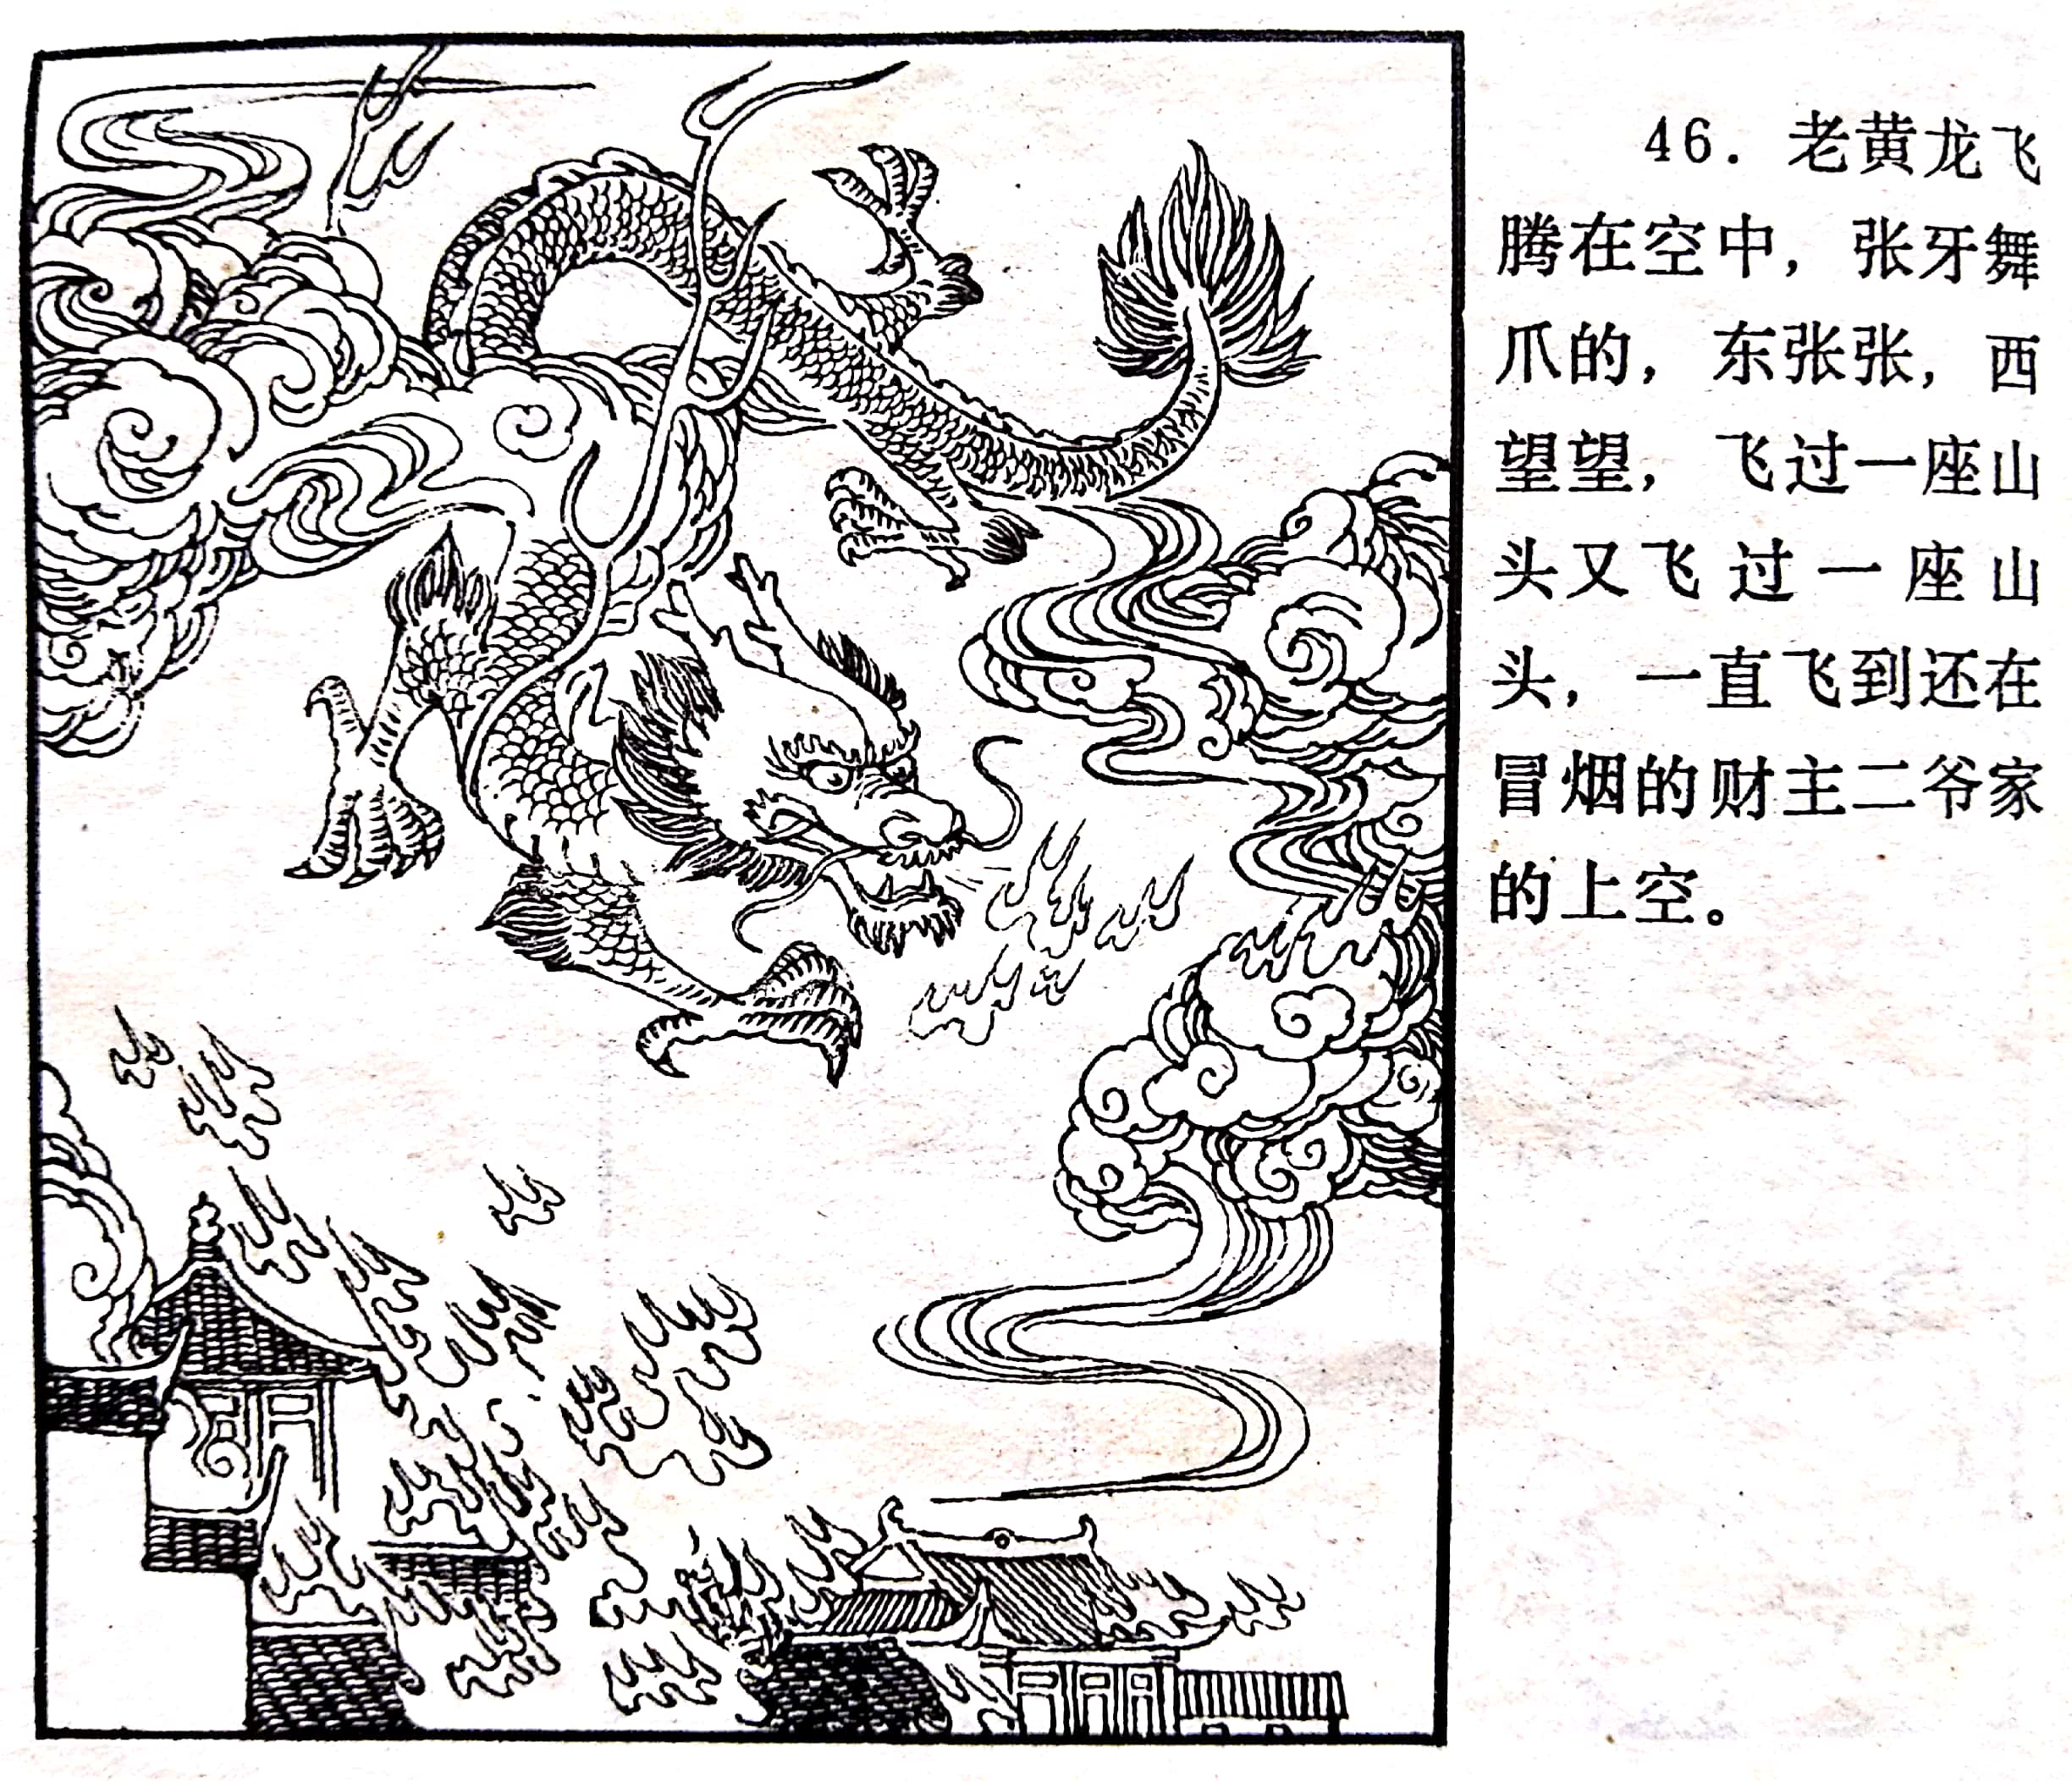 46．老黄龙飞
腾在空中，张牙舞
爪的，东张张，西
望望，飞过一座山
头又飞过一座山
头，一直飞到还在
冒烟的财主二爷家
的上空。